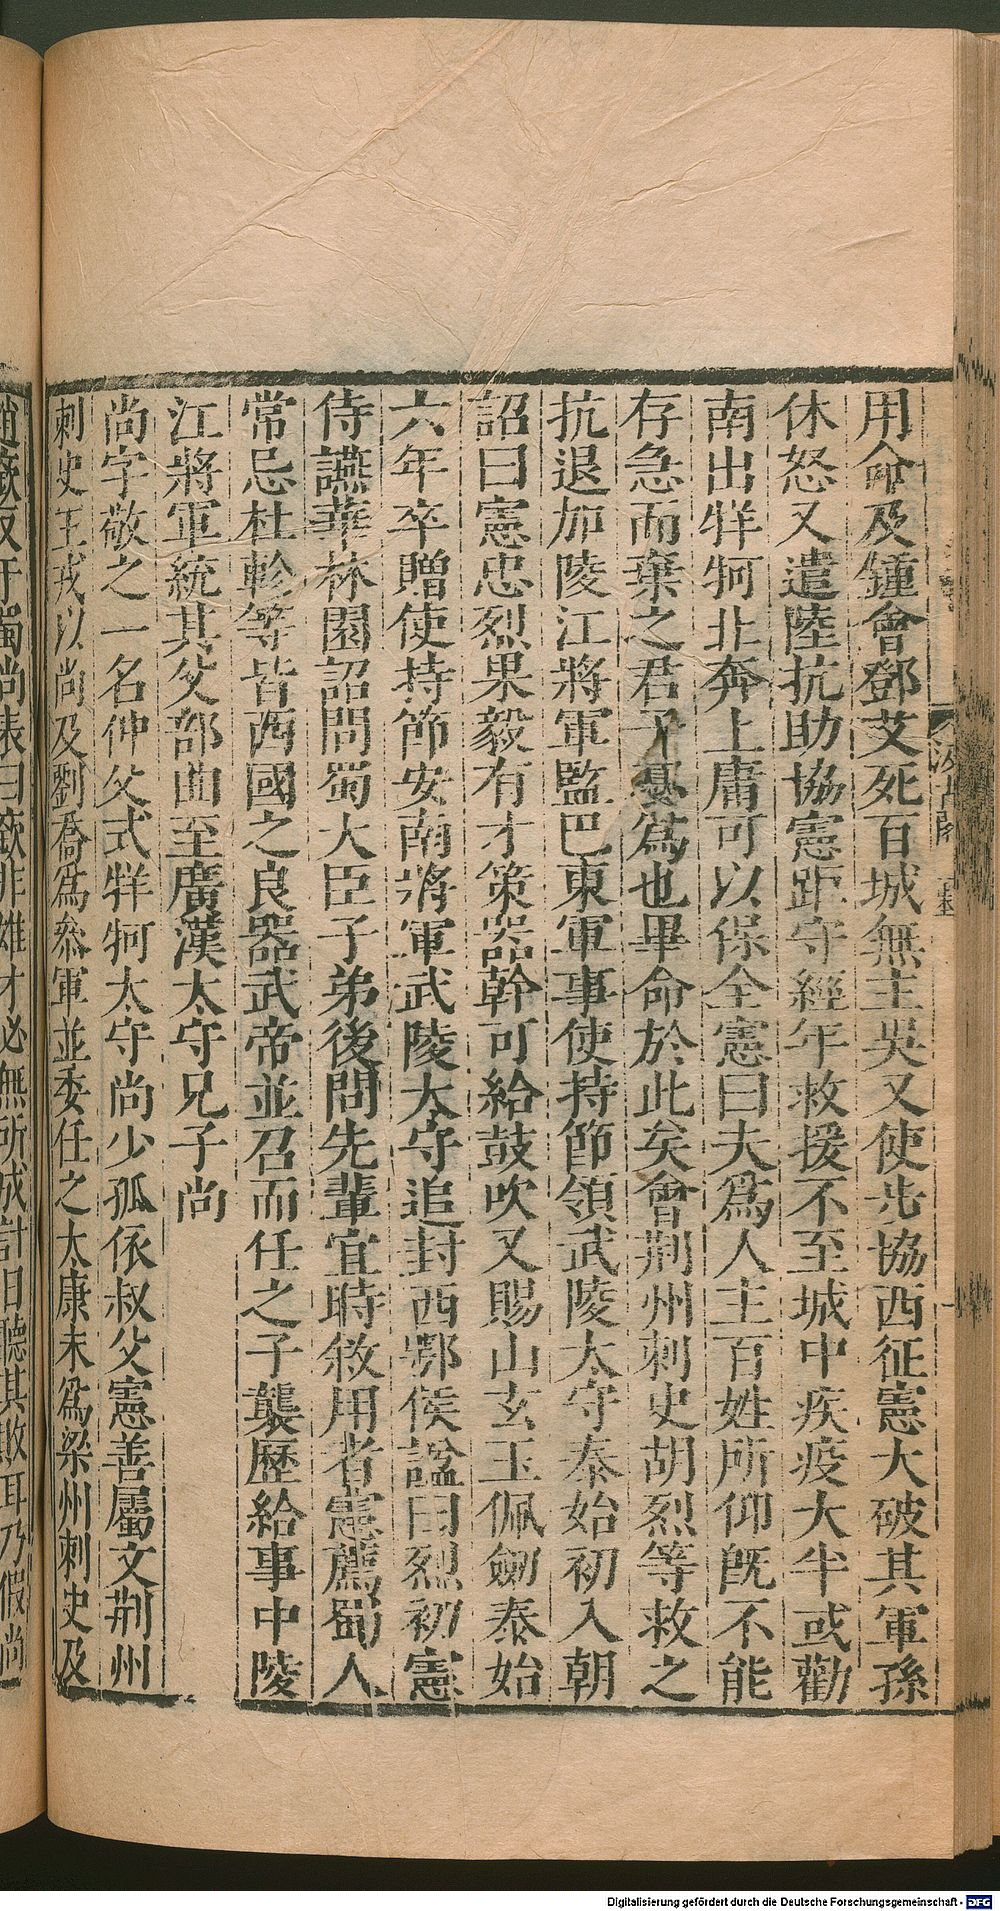 用命及鍾會鄧艾死百城無主吳又使步協西征憲大破其軍孫
休怒又遣陸抗助協憲距守經年救援不至城中疾疫大半或勸
南出牂牁北奔上庸可以保全憲曰夫爲人主百姓所仰旣不能
存急而棄之君子不爲也畢命於此矣會荆州刺史胡烈等救之
抗退加陵江將軍監巴東軍事使持節領武陵太守泰始初入朝
詔曰憲忠烈果毅有才策器幹可給鼓吹又賜山玄玉佩劒泰始
六年卒贈使持節安南將軍武陵太守追封西鄂侯諡曰烈初憲
侍讌華林園詔問蜀大臣子弟後問先輩宜時敘用者憲薦蜀人
常忌杜軫等皆西國之良器武帝並召而任之子襲歷給事中陵
江將軍統其父部曲至廣漢太守兄子尚
尚字敬之一名仲父式牂牁太守尚少孤依叔父憲善屬文荆州
刺史王戎以尚及劉喬爲參軍並委任之太康末爲梁州刺史及
趙廞反于蜀尚表曰廞非雄才必無所成計日聽其敗耳乃假尚
Digitalisierung gefördert durch die Deutsche Forschungsgemeinschaft - DFG